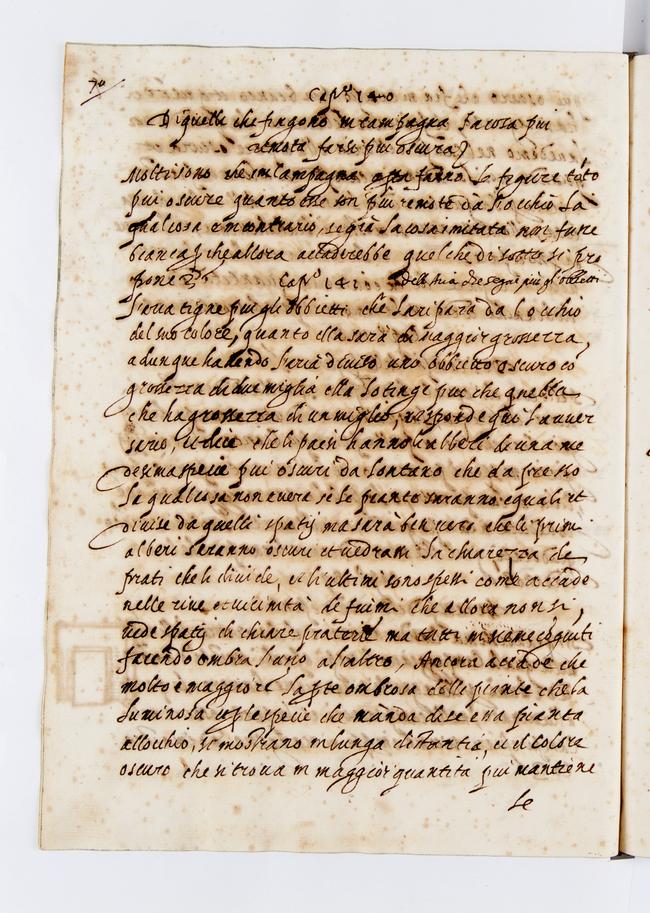 70
Cap.º 140
Di quelli che fingono in campagna la cosa piu
remota farsi piu oscura
Molti sono che in campagna fanno le figure tãto
piu oscure quanto che son piu remote da l'occhio la
qual cosa è in contrario, se già la cosa imitata non fusse
bianca che allora accaderebbe quel che di sotto si pro
pone
Cap.º 141. Dell'Aria che segni piu gl'obbietti
L'aria tigne piu gli obbietti che la ripara da l'occhio
del suo colore, quanto ella sarà di maggior grossezza,
adunque havendo l'aria diviso uno obbietto oscuro cõ
grossezza di due miglia ella lo tinge piu che quella
che ha grossezza di un miglio, risponde qui l'auuer
sario, et dice che li paesi hanno li alberi de una me
desima specie piu oscuri da lontano che da presso
la qual cosa non è vera se le piante saranno eguali et
divise da quelli spatij ma sarà ben vero che li primi
alberi saranno oscuri et vedrassi la chiarezza de
prati che li divide, et li ultimi sono spessi come accade
nelle rive et vicinità de fiumi che allora non si
vede spatij di chiare praterie ma tutti insieme cõgiunti
facendo ombra l'uno a l'altro, Ancora accade che
molto è maggiore la p̃te ombrosa delle piante che la
luminosa et le specie che manda di se essa pianta
all'occhio, si mostrano in lunga distantia, et il colore
oscuro che si trova in maggior quantita piu mantiene
le